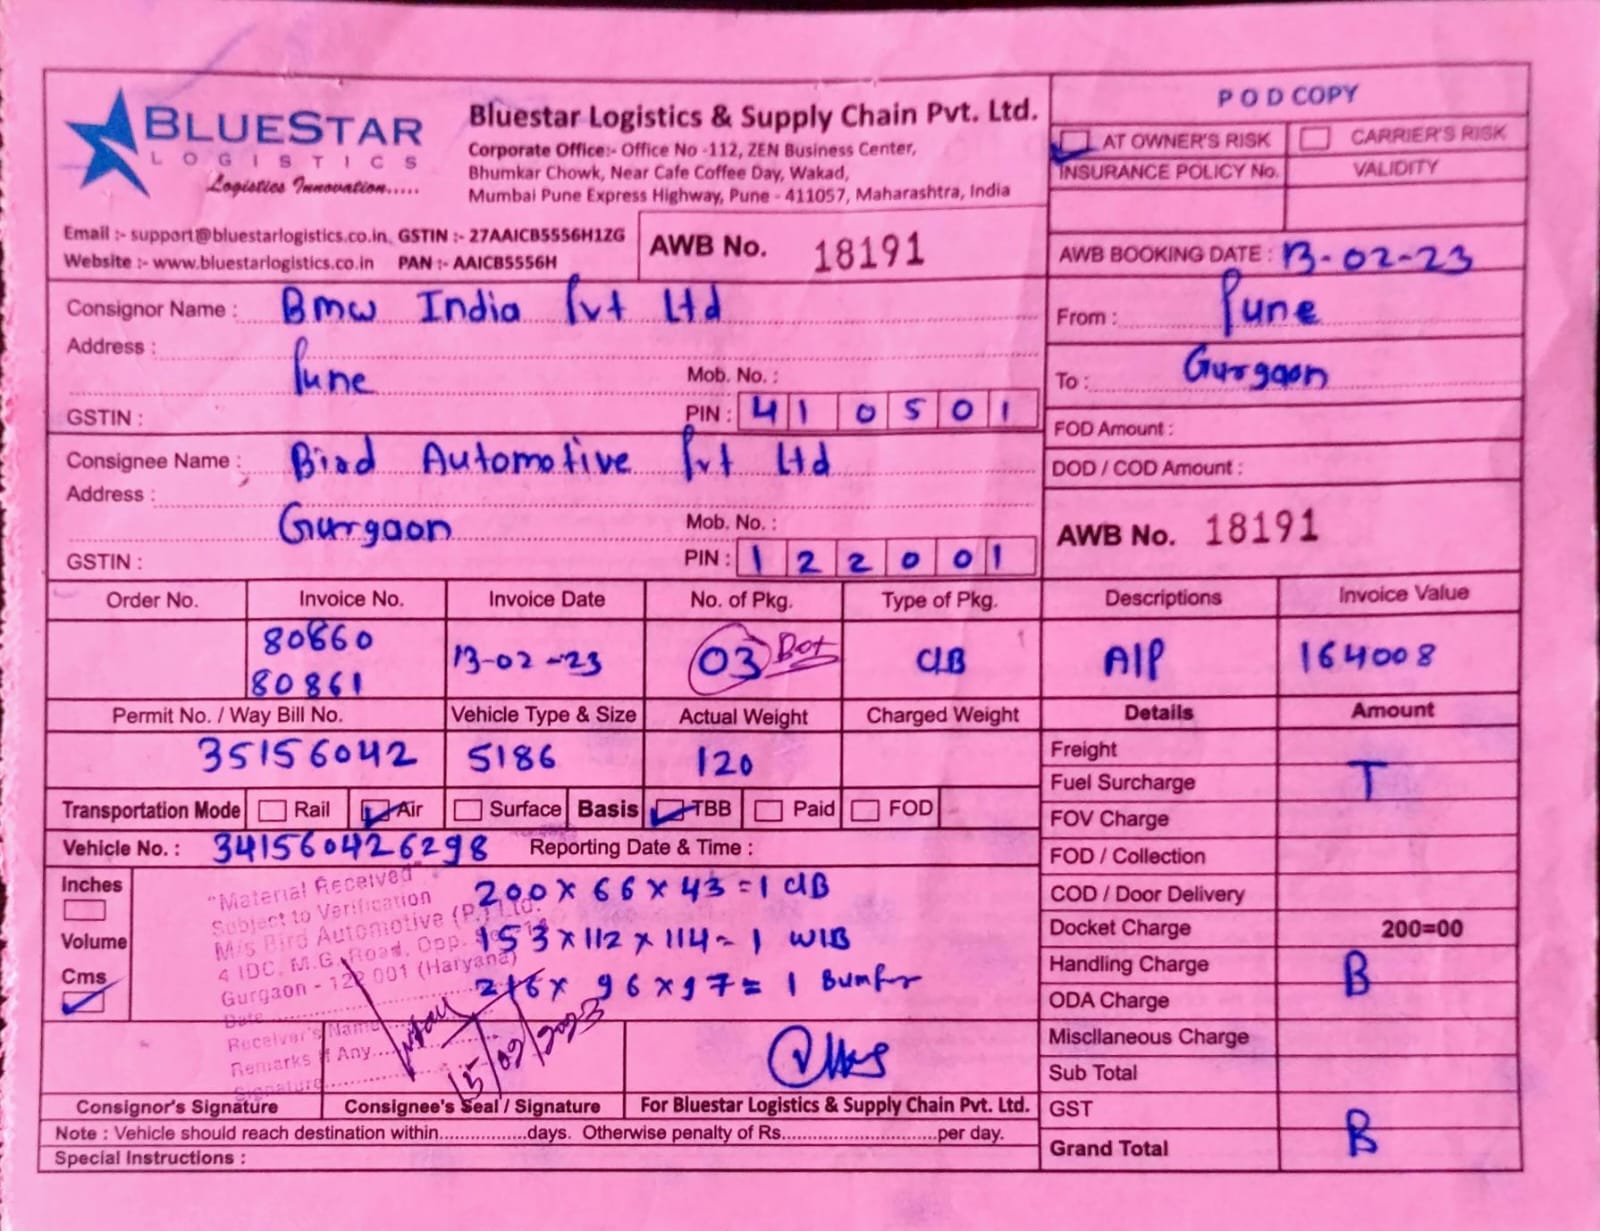 BLUESTAR
LOGISTICS
Logistics Innovation.....
Bluestar Logistics & Supply Chain Pvt. Ltd.
Corporate Office:- Office No -112, ZEN Business Center,
Bhumkar Chowk, Near Cafe Coffee Day, Wakad,
Mumbai Pune Express Highway, Pune - 411057, Maharashtra, India
Email :- support@bluestarlogistics.co.in GSTIN :- 27AAICB5556H1ZG
Website :- www.bluestarlogistics.co.in PAN :- AAICB5556H
AWB No. 18191
POD COPY
AT OWNER'S RISK CARRIER'S RISK
INSURANCE POLICY No. VALIDITY
AWB BOOKING DATE : 13-02-23
Consignor Name : Bmw India Pvt Ltd
Address :
Pune Mob. No. :
GSTIN : PIN : 410501
From : Pune
To : Gurgaon
FOD Amount :
DOD / COD Amount :
Consignee Name : Bird Automotive Pvt Ltd
Address :
Gurgaon Mob. No. :
GSTIN : PIN : 122001
AWB No. 18191
Order No. Invoice No. Invoice Date No. of Pkg. Type of Pkg. Descriptions Invoice Value
80860 13-02-23 03 Box CLB AIP 164008
80861
Permit No. / Way Bill No. Vehicle Type & Size Actual Weight Charged Weight Details Amount
35156042 5186 120
Transportation Mode Rail Air Surface Basis TBB Paid FOD
Vehicle No. : 341560426298 Reporting Date & Time :
Freight
Fuel Surcharge T
FOV Charge
FOD / Collection
COD / Door Delivery
Docket Charge 200=00
Handling Charge B
ODA Charge
Miscllaneous Charge
Sub Total
GST
Grand Total B
Inches
Volume
Cms
200 x 66 x 43 = 1 CLB
153 x 112 x 114 = 1 WLB
216 x 96 x 97 = 1 Bumper
"Material Received
Subject to Verification
M/s Bird Automotive (P.) Ltd.
4 IDC, M.G. Road, Opp.
Gurgaon - 122 001 (Haryana)
Date
Receiver's Name
Remarks if Any
Signature
15/02/2023
Consignor's Signature Consignee's Seal / Signature For Bluestar Logistics & Supply Chain Pvt. Ltd.
Note : Vehicle should reach destination within.................days. Otherwise penalty of Rs.............................per day.
Special Instructions :